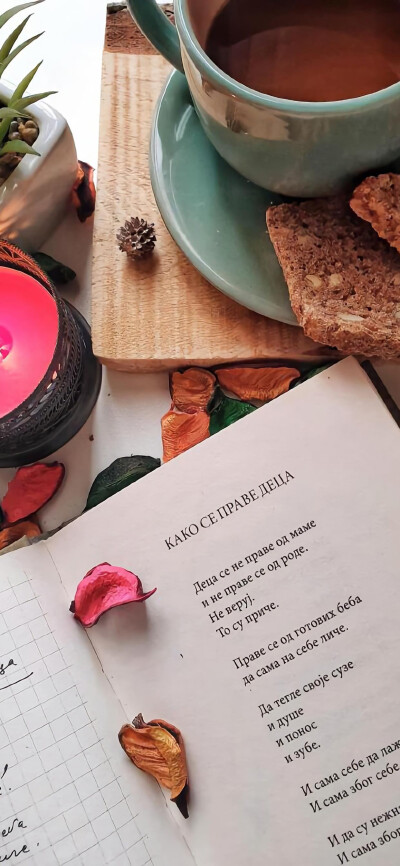 КАКО СЕ ПРАВЕ ДЕЦА
Деца се не праве од маме
и не праве се од роде.
Не веруј.
То су приче.
Праве се од готових беба
да сама на себе личе.
Да тегле своје сузе
и душе
и понос
и зубе.
И сама себе да лажу
И сама због себе
И да су нежна
И сама због